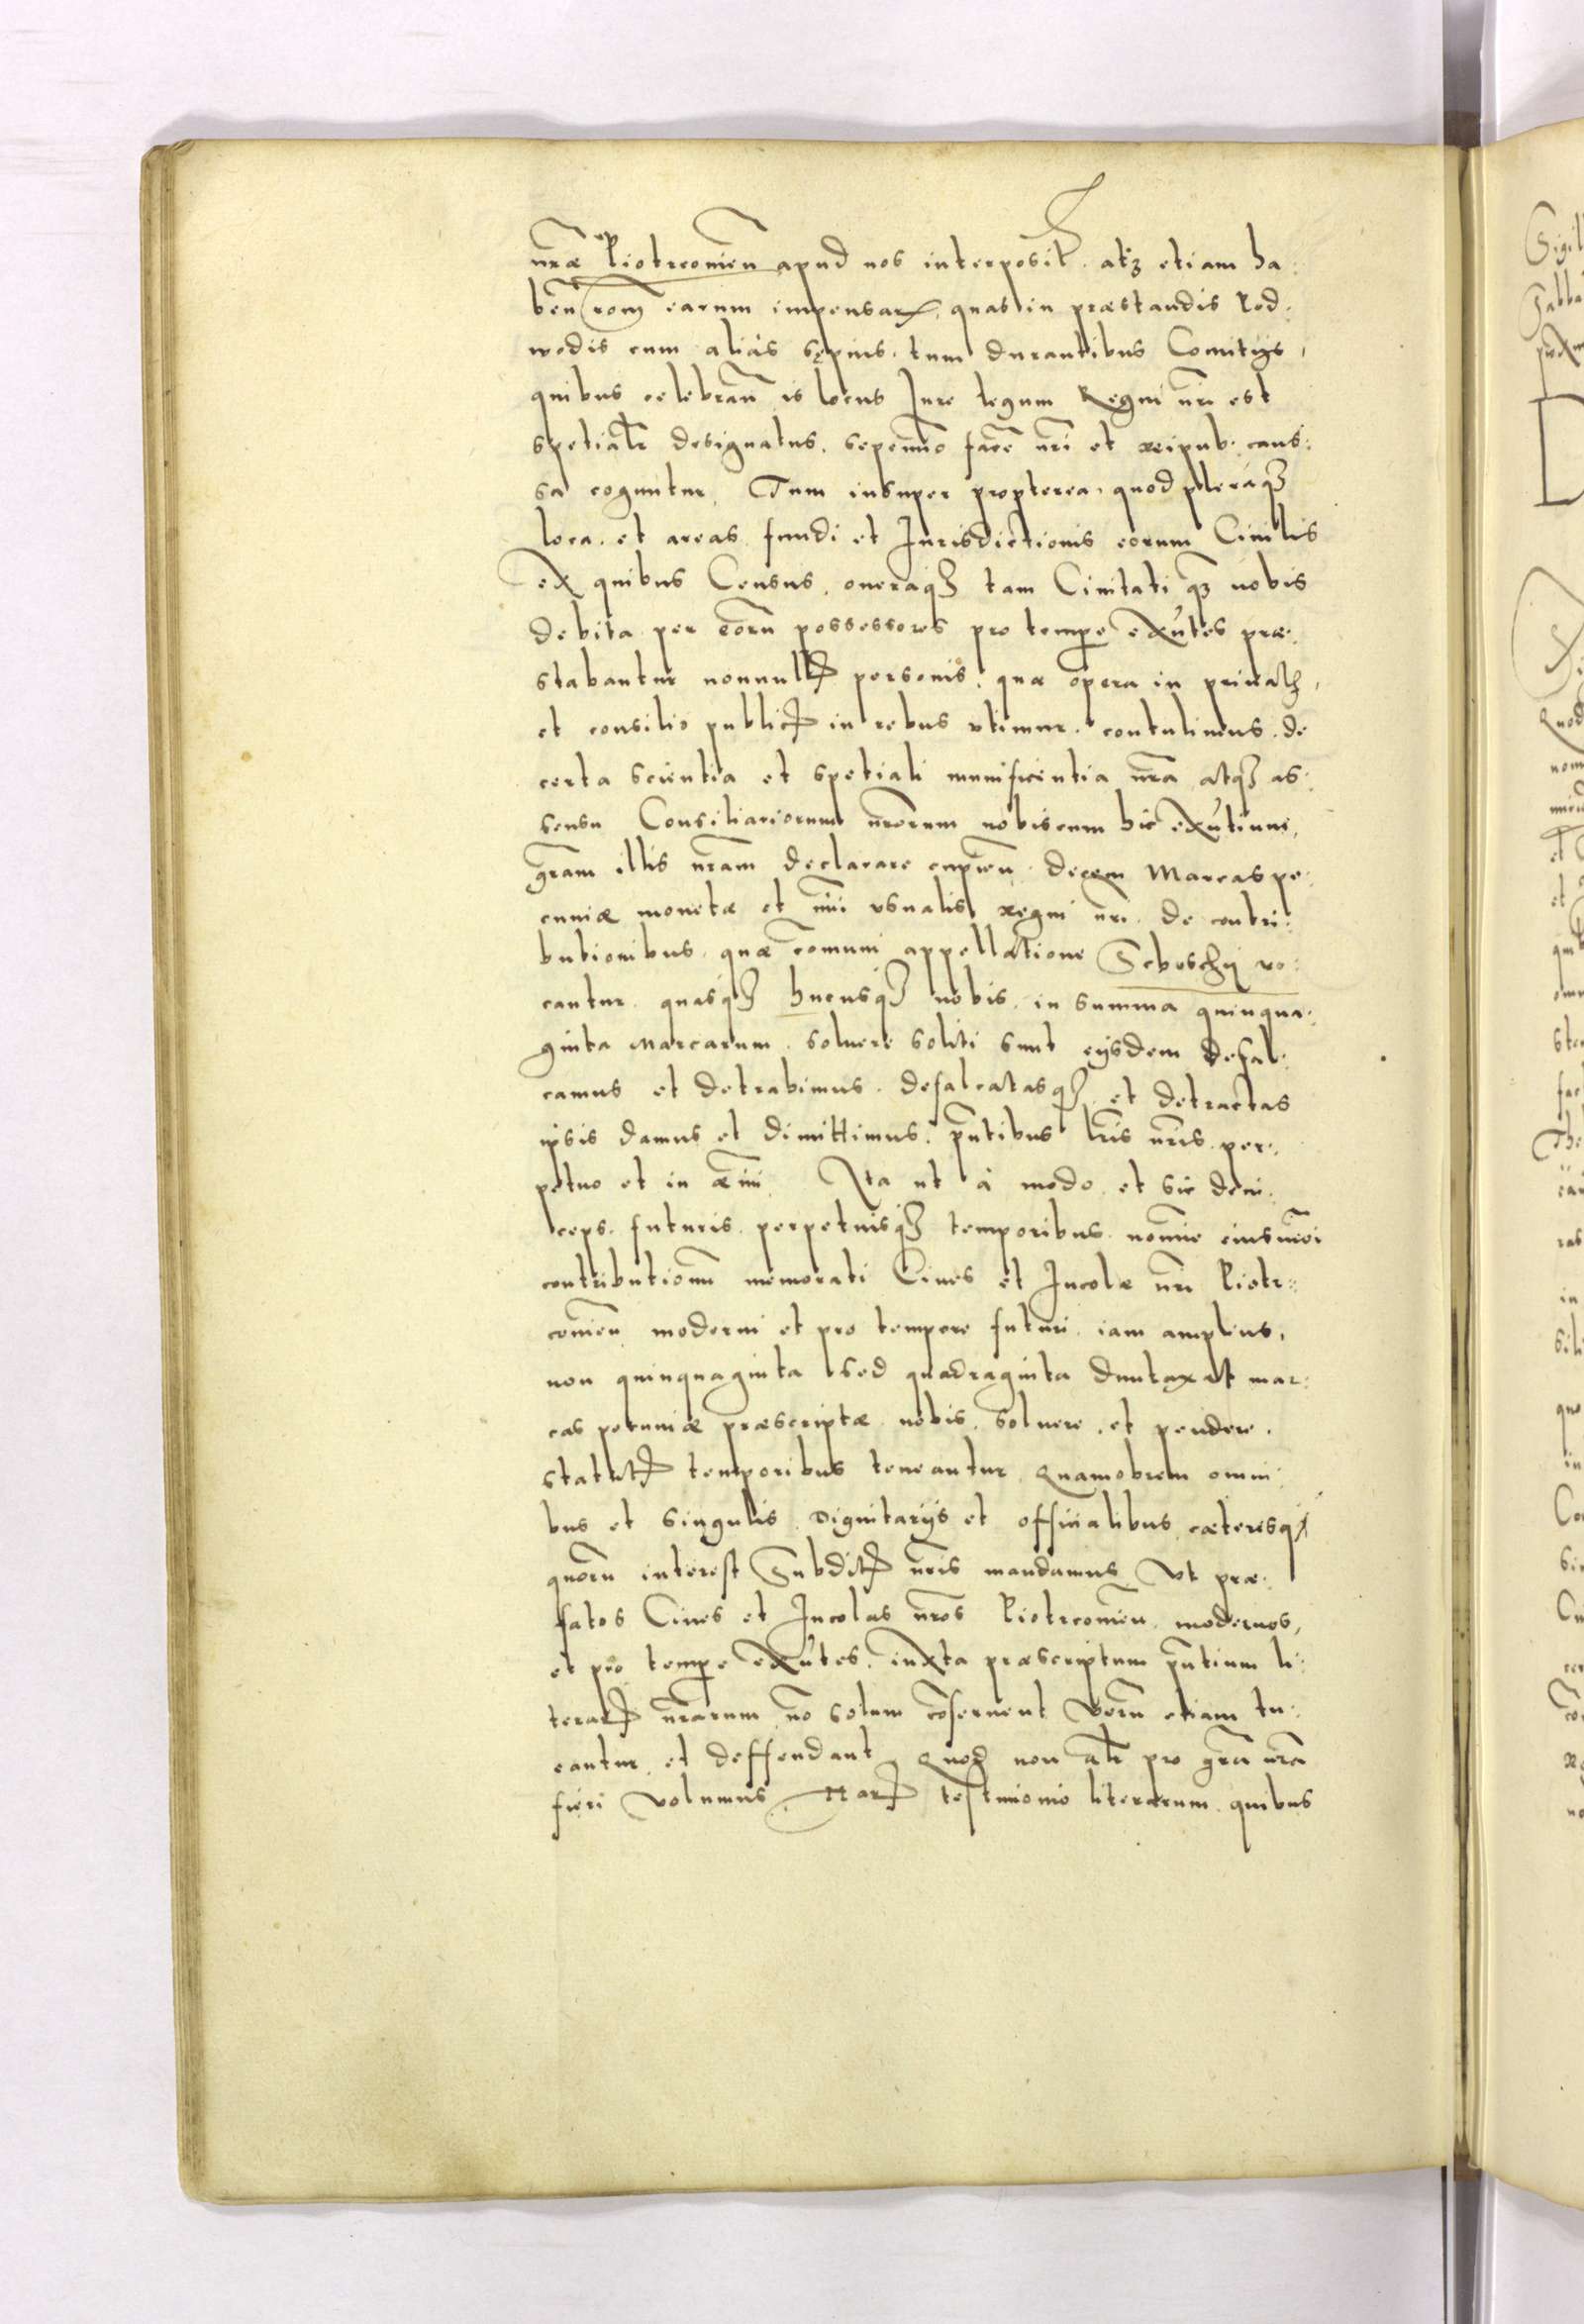 nrӕ Piotrcomien apud nos interposit. atqȝ etiam ha:
ben rom earum impensarꝝ, quas in præstandis Pod:
wodis cum aliàs sępius, tum durantibus Comitijs,
quibus celebran is locus Iure legum Regni nri est
spetialr designatus, sepenumo face nri et reipub. caus:
sa coguntur, Tum insuper propterea, quod pleráqȝ
loca, et areas fundi et Iurisdictionis eorum Ciuilis
ex quibus Census, oneraqȝ tam Ciuitati qȝ nobis
debita per eoru possessores pro tempe exntes præ:
stabantur nonnullꝭ personis, quæ opera in priuatꝭ,
et consilio publicꝭ in rebus vtimur, contulimus, de
certa scientia et spetiali munificentia nra, atqȝ as:
sensu Consiliariorum nrorum nobiscum hic exntium,
gram illis nram declarare cupien. decem Marcas pe:
cuniæ monetæ et nui vsualis regni nri. de contri:
butionibus, quæ comuni appellatione Schoschij vo:
cantur quasqȝ hucusqȝ nobis, in summa quinqua:
ginta Marcarum, soluere soliti sunt eijsdem defal:
camus et detrahimus, defalcatasqȝ et detractas
ipsis damus et dimittimus, pntibus lris nris per:
petuo et in æuu. Ita ut à modo, et sic dein:
ceps, futuris, perpetuisqȝ temporibus, nomine eiusmoi
contributionu memorati Ciues et Incolæ nri Piotr:
comien moderni et pro tempore futuri, iam amplius,
non quinquaginta sed quadraginta duntaxat mar:
cas pecuniæ præscriptæ nobis, soluere, et pendere,
statutꝭ temporibus teneantur. Quamobrem omni:
bus et singulis, Dignitarijs et officialibus, cæterisqȝ
quoru interest Subditꝭ nris mandamus, Vt præ:
fatos Ciues et Incolas nros Piotrcomien, modernos,
et pro tempe exntes, iuxta præscriptum pntium li:
terarꝭ nrarum, no solum coseruent, Veru etiam tu:
eantur, et deffendant, Quod non altr pro gra nra
fieri volumus Harꝭ testimonio literarum, quibus